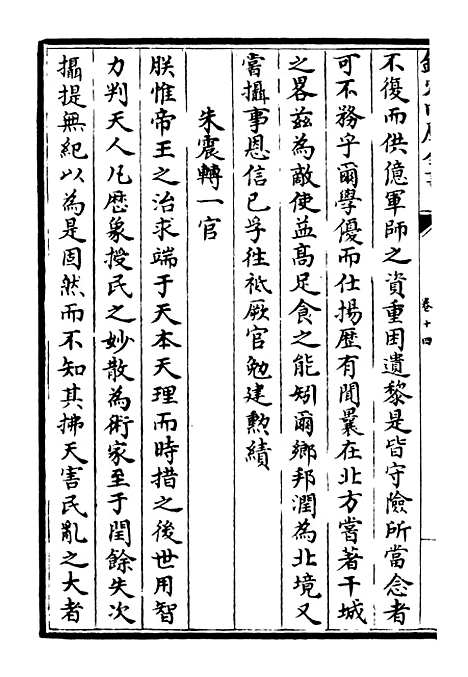 不復而供億軍師之資重困遺黎是皆守險所當念者
可不務乎爾學優而仕揚歴有聞曩在北方嘗著干城
之畧兹為敵使益髙足食之能矧爾鄉邦潤為北境又
嘗攝事恩信已孚往祗厥官勉建勲績
朱震轉一官
朕惟帝王之治求端于天本天理而時措之後世用智
力判天人凡歴象授民之妙散為術家至于閏餘失次
攝提無紀以為是固然而不知其拂天害民亂之大者
卷十四